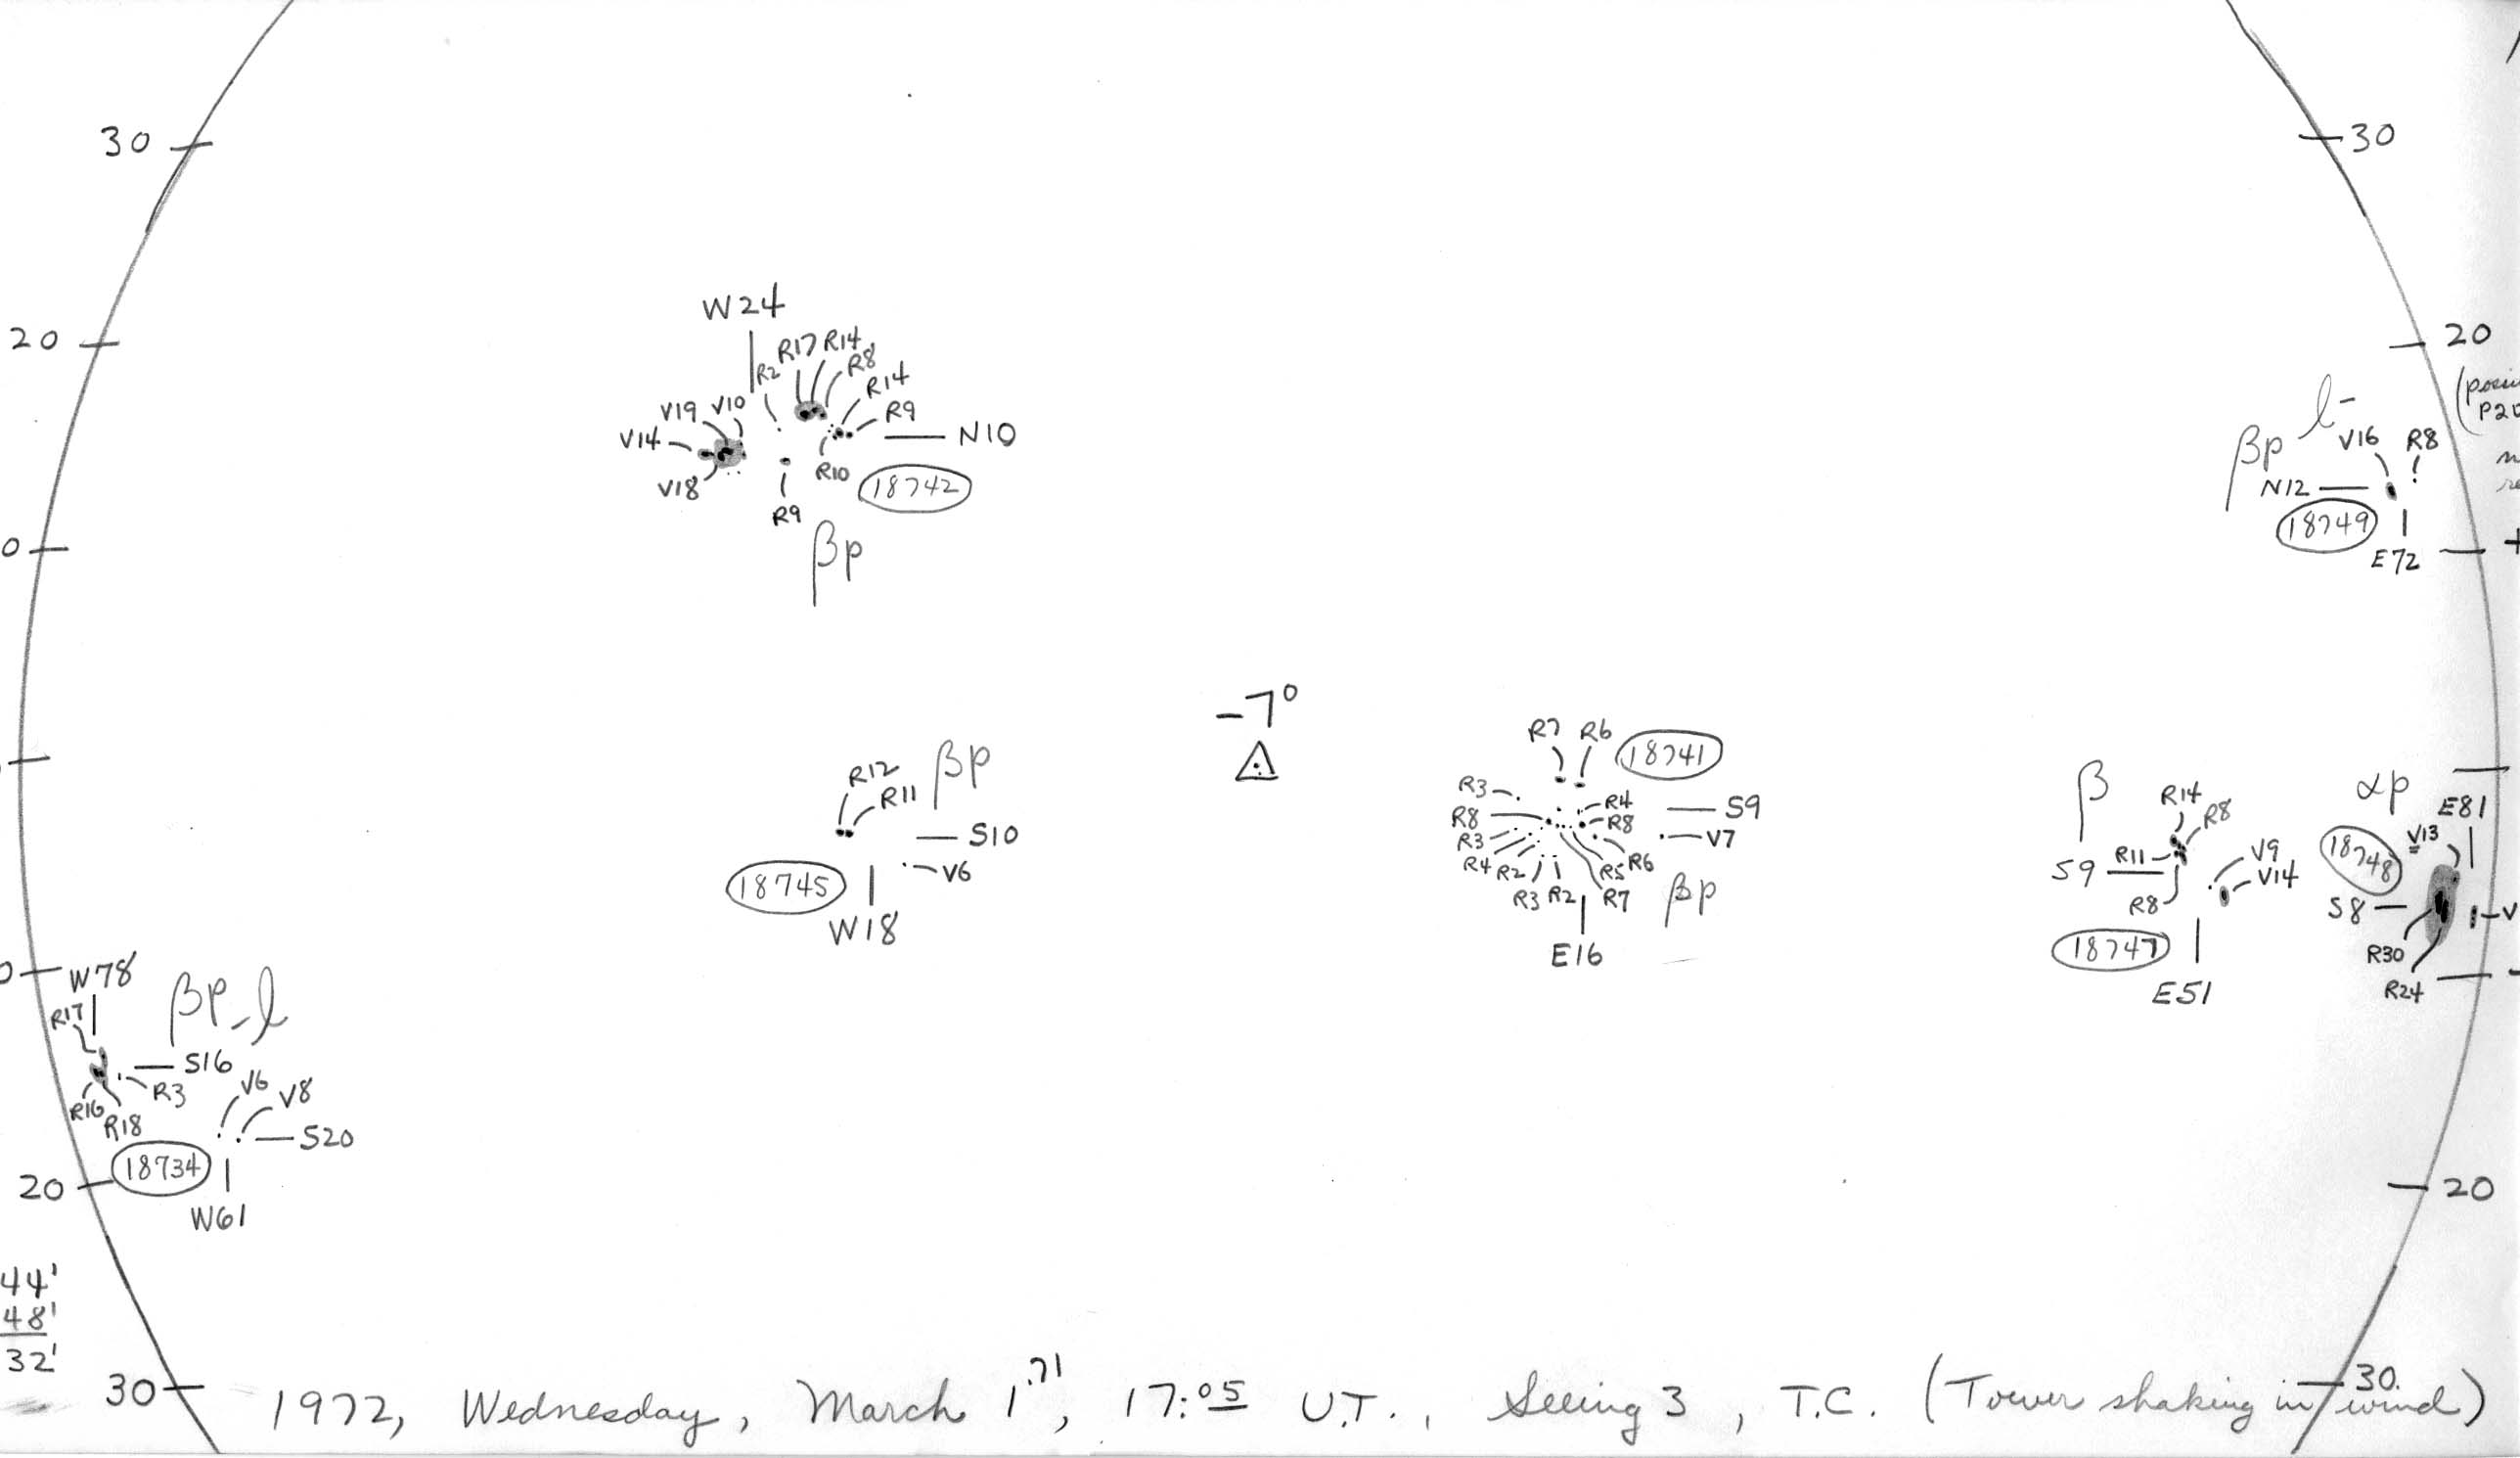 30
30
W24
20
R17 R14
R8
R2
R14
20
V19 V10
R9
V14
N10
R10
V18
18742
R9
βp
l-
V16
R8
βp
N12
18749
E72
0
+
-7°
R7 R6
18741
βp
R12
R11
S10
V6
18745
W18
R3
R4
S9
R8
R8
R3
V7
R4
R2
R5
R6
R3
R2
R7
βp
E16
β
R14
R8
R11
S9
V9
V14
R8
18747
E51
αp
E81
V13
18748
S8
V
R30
R24
0
W78
βp-l
R17
S16
R3
V6
V8
R16
R18
S20
18734
20
W61
20
44'
48'
32'
30
30.
1972, Wednesday, March 1.71, 17:05 U.T., Seeing 3, T.C. (Tower shaking in wind)